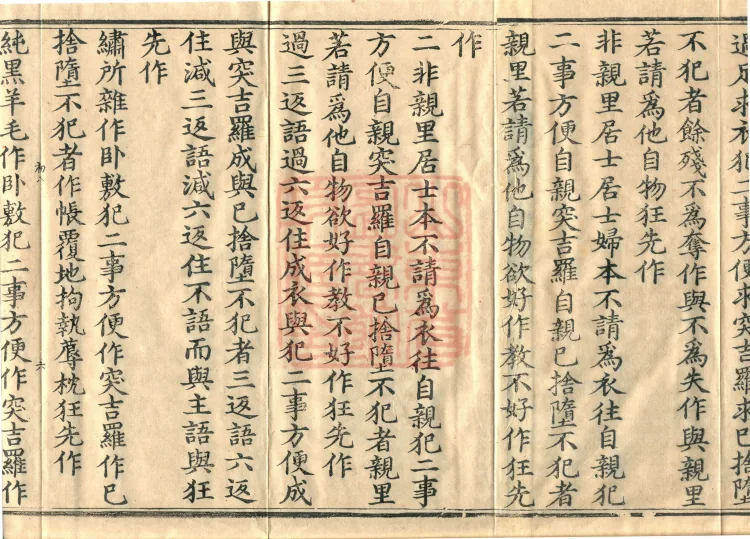 過足求衣犯二事方便求突吉羅求已捨墮
不犯者餘殘不為奪作與不為失作與親里
若請為他自物狂先作
非親里居士居士婦本不請為衣往自親犯
二事方便自親突吉羅自親已捨墮不犯者
親里若請為他自物欲好作教不好作狂先
作
二非親里居士本不請為衣往自親犯二事
方便自親突吉羅自親已捨墮不犯者親里
若請為他自物欲好作教不好作狂先作
過三返語過六返住成衣與犯二事方便成
與突吉羅成與已捨墮不犯者三返語六返
住減三返語減六返住不語而與主語與狂
先作
繡所雜作卧敷犯二事方便作突吉羅作已
捨墮不犯者作帳覆地拘執蓐枕狂先作
初入
六
純黑羊毛作卧敷犯二事方便作突吉羅作